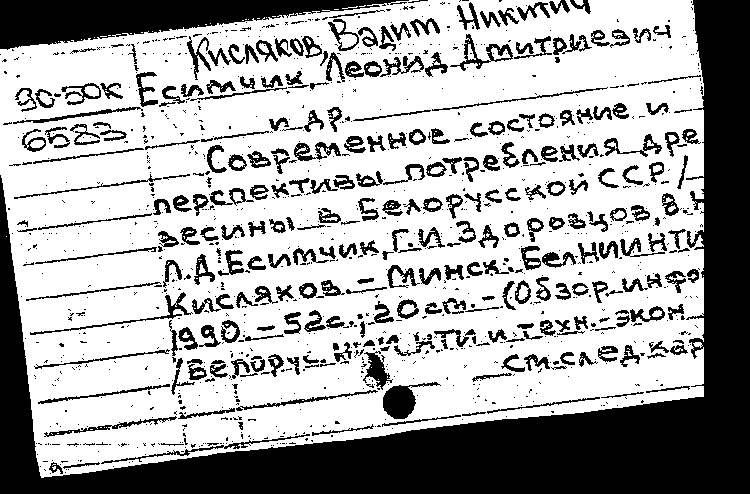 Кисляков, Вадим Никитич
90-50к Еситчик, Леонид Дмитриевич
6583 и др.
Современное состояние и
перспективы потребления дре
весины в Белорусской ССР /
Л.Д. Еситчик, Г.И. Здоровцов, В.Н
Кисляков. – Минск: БелНИИНТИ
1990. – 52с.; 20 см. – (Обзор. инфо
/Белорус. НИИ НТИ и техн.-экон
см. след. кар